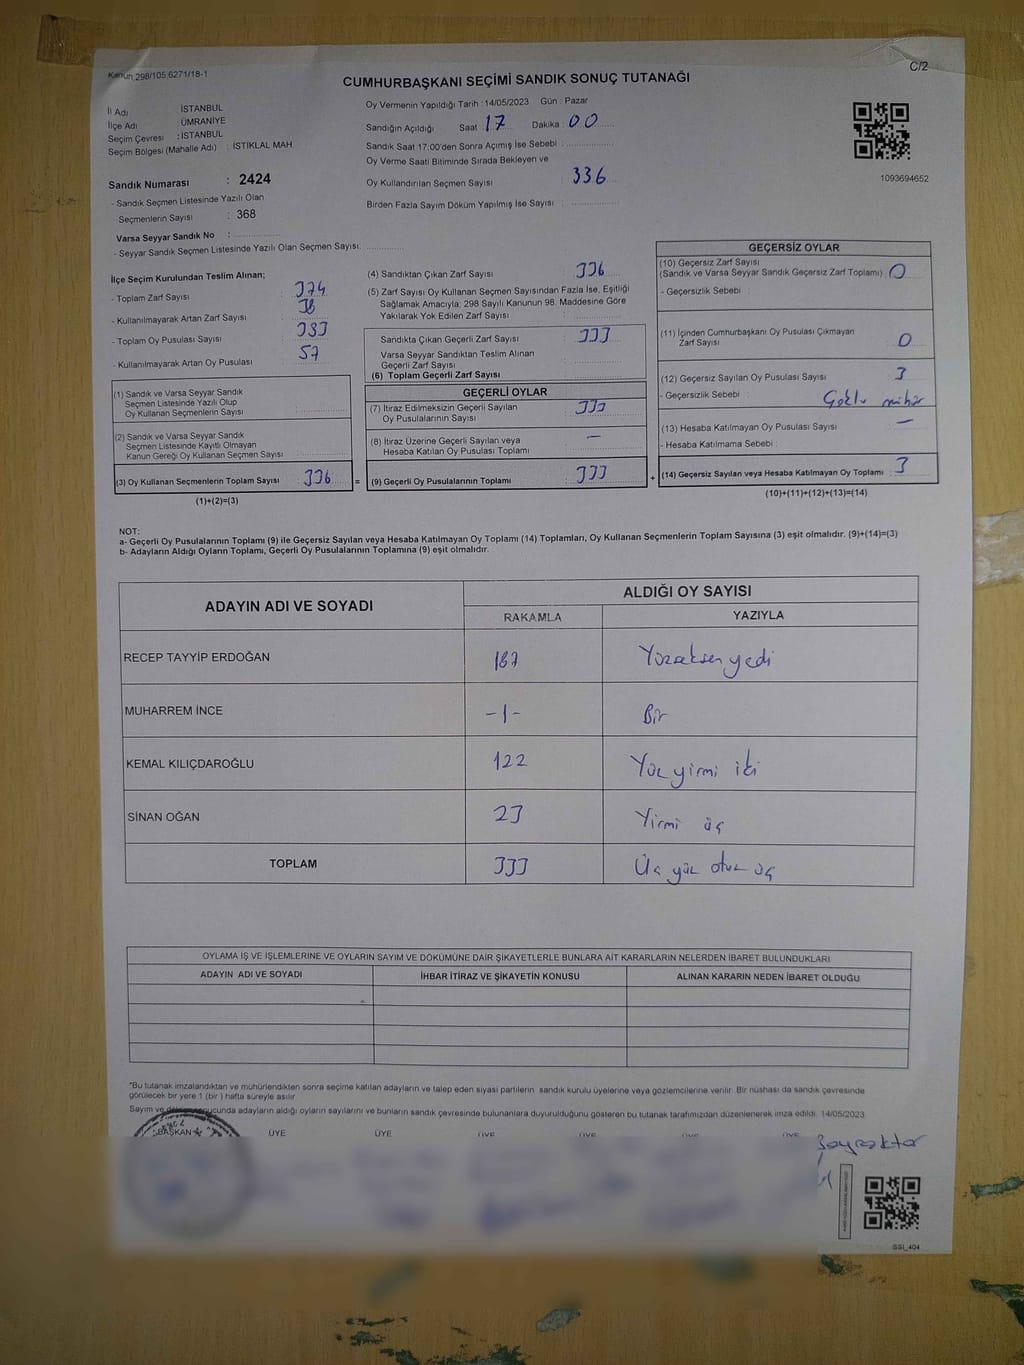 Kanun 298/105 6271/18-1
C/2
CUMHURBAŞKANI SEÇİMİ SANDIK SONUÇ TUTANAĞI
İl Adı : İSTANBUL
İlçe Adı : ÜMRANİYE
Seçim Çevresi : İSTANBUL
Seçim Bölgesi (Mahalle Adı) : İSTİKLAL MAH.
Sandık Numarası : 2424
- Sandık Seçmen Listesinde Yazılı Olan
Seçmenlerin Sayısı : 368
Varsa Seyyar Sandık No :
- Seyyar Sandık Seçmen Listesinde Yazılı Olan Seçmen Sayısı:
Oy Vermenin Yapıldığı Tarih : 14/05/2023 Gün : Pazar
Sandığın Açıldığı Saat 17 Dakika 00
Sandık Saat 17:00'den Sonra Açımış İse Sebebi :
Oy Verme Saati Bitiminde Sırada Bekleyen ve
Oy Kullandırılan Seçmen Sayısı : 336
Birden Fazla Sayım Döküm Yapılmış İse Sayısı :
1093694652
İlçe Seçim Kurulundan Teslim Alınan;
- Toplam Zarf Sayısı : 374
- Kullanılmayarak Artan Zarf Sayısı : 38
- Toplam Oy Pusulası Sayısı : 393
- Kullanılmayarak Artan Oy Pusulası : 57
(1) Sandık ve Varsa Seyyar Sandık
Seçmen Listesinde Yazılı Olup
Oy Kullanan Seçmenlerin Sayısı
(2) Sandık ve Varsa Seyyar Sandık
Seçmen Listesinde Kayıtlı Olmayan
Kanun Gereği Oy Kullanan Seçmen Sayısı :
(3) Oy Kullanan Seçmenlerin Toplam Sayısı : 336 =
(1)+(2)=(3)
(4) Sandıktan Çıkan Zarf Sayısı : 336
(5) Zarf Sayısı Oy Kullanan Seçmen Sayısından Fazla İse, Eşitliği
Sağlamak Amacıyla: 298 Sayılı Kanunun 98. Maddesine Göre
Yakılarak Yok Edilen Zarf Sayısı :
Sandıkta Çıkan Geçerli Zarf Sayısı : 333
Varsa Seyyar Sandıktan Teslim Alınan
Geçerli Zarf Sayısı
(6) Toplam Geçerli Zarf Sayısı
GEÇERLİ OYLAR
(7) İtiraz Edilmeksizin Geçerli Sayılan : 333
Oy Pusulalarının Sayısı
(8) İtiraz Üzerine Geçerli Sayılan veya : —
Hesaba Katılan Oy Pusulası Toplamı
(9) Geçerli Oy Pusulalarının Toplamı : 333 +
GEÇERSİZ OYLAR
(10) Geçersiz Zarf Sayısı
(Sandık ve Varsa Seyyar Sandık Geçersiz Zarf Toplamı) : 0
- Geçersizlik Sebebi :
(11) İçinden Cumhurbaşkanı Oy Pusulası Çıkmayan
Zarf Sayısı : 0
(12) Geçersiz Sayılan Oy Pusulası Sayısı : 3
- Geçersizlik Sebebi : Çoklu mühür
(13) Hesaba Katılmayan Oy Pusulası Sayısı : —
- Hesaba Katılmama Sebebi :
(14) Geçersiz Sayılan veya Hesaba Katılmayan Oy Toplamı : 3
(10)+(11)+(12)+(13)=(14)
NOT:
a- Geçerli Oy Pusulalarının Toplamı (9) ile Geçersiz Sayılan veya Hesaba Katılmayan Oy Toplamı (14) Toplamları, Oy Kullanan Seçmenlerin Toplam Sayısına (3) eşit olmalıdır. (9)+(14)=(3)
b- Adayların Aldığı Oyların Toplamı, Geçerli Oy Pusulalarının Toplamına (9) eşit olmalıdır.
ADAYIN ADI VE SOYADI ALDIĞI OY SAYISI
RAKAMLA YAZIYLA
RECEP TAYYİP ERDOĞAN 187 Yüzseksen yedi
MUHARREM İNCE -1- Bir
KEMAL KILIÇDAROĞLU 122 Yüz yirmi iki
SİNAN OĞAN 23 Yirmi üç
TOPLAM 333 Üç yüz otuz üç
OYLAMA İŞ VE İŞLEMLERİNE VE OYLARIN SAYIM VE DÖKÜMÜNE DAİR ŞİKAYETLERLE BUNLARA AİT KARARLARIN NELERDEN İBARET BULUNDUKLARI
ADAYIN ADI VE SOYADI İHBAR İTİRAZ VE ŞİKAYETİN KONUSU ALINAN KARARIN NEDEN İBARET OLDUĞU
*Bu tutanak imzalandıktan ve mühürlendikten sonra seçime katılan adayların ve talep eden siyasi partilerin sandık kurulu üyelerine veya gözlemcilerine verilir. Bir nüshası da sandık çevresinde
görülecek bir yere 1 (bir) hafta süreyle asılır
Sayım ve sonucunda adayların aldığı oyların sayılarını ve bunların sandık çevresinde bulunanlara duyurulduğunu gösteren bu tutanak tarafımızdan düzenlenerek imza edildi. 14/05/2023
BAŞKAN ÜYE ÜYE ÜYE ÜYE ÜYE ÜYE
Bayraktar
SSİ_404